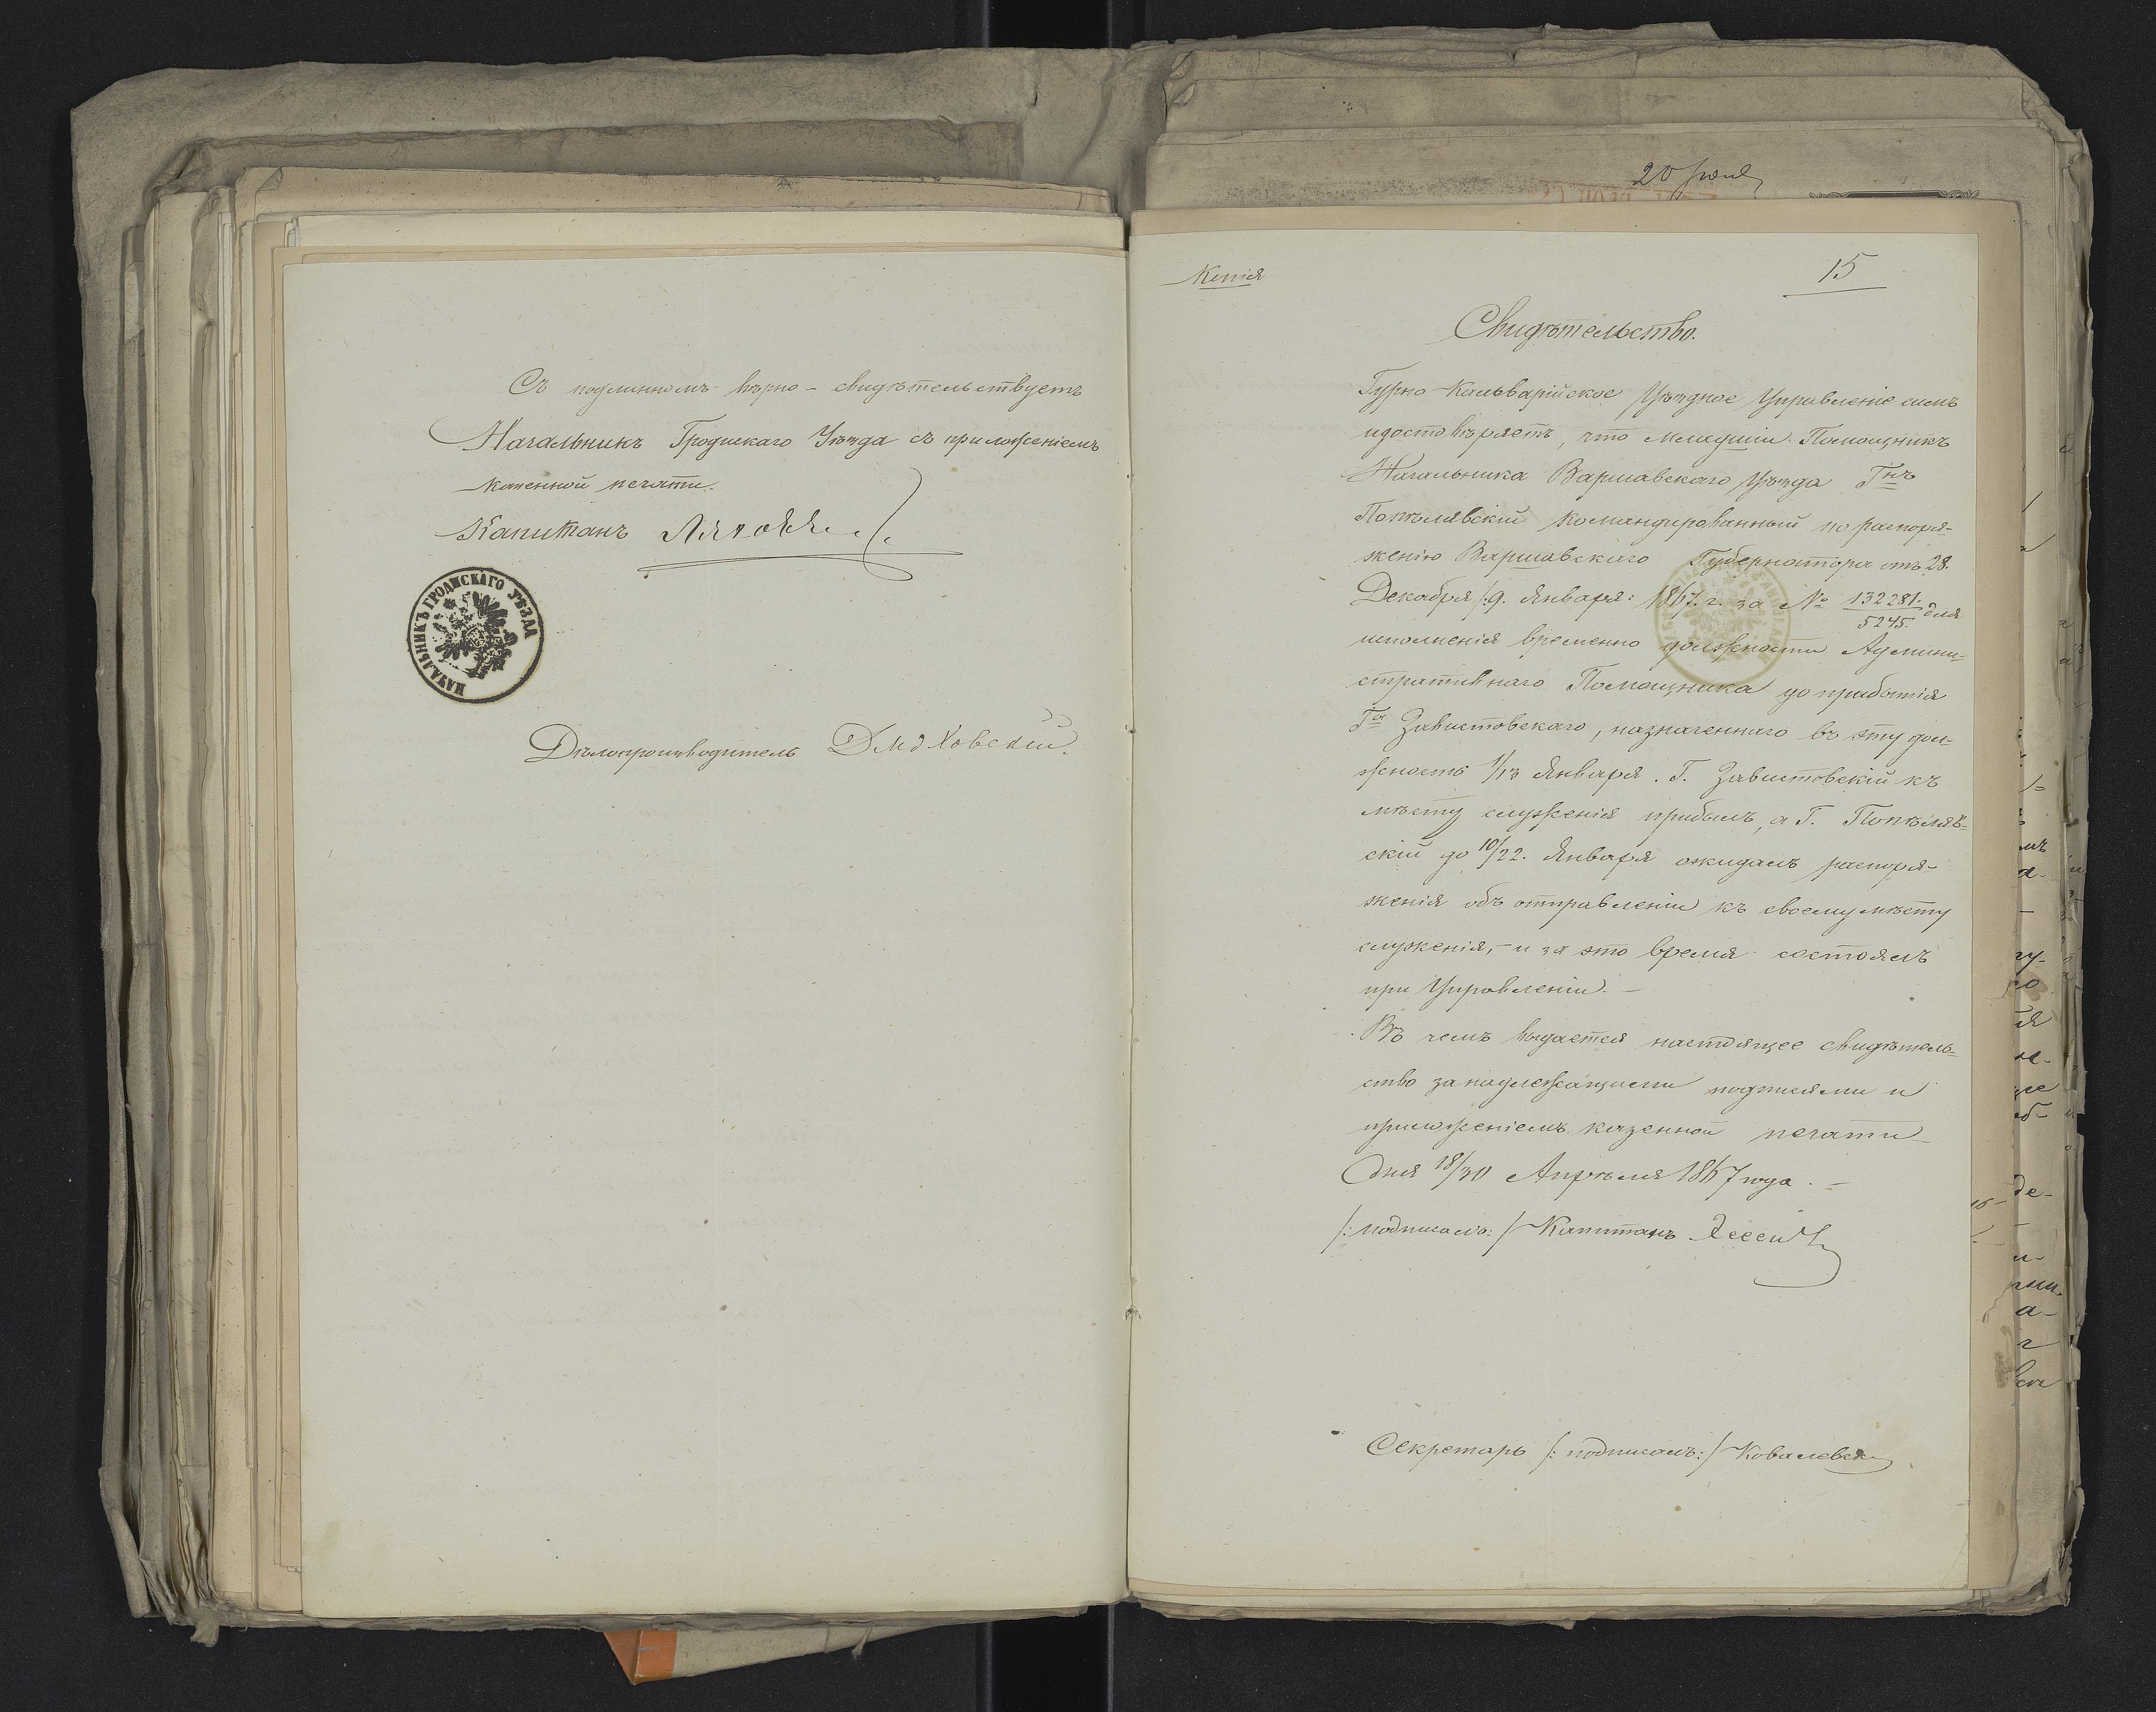 Съ подлиннымъ вѣрно - свидѣтельствуетъ
Начальникъ Гродискаго Уѣзда съ приложеніемъ
казенной печати.
Капитанъ
НАЧАЛЬНИКЪ ГРОДИСКАГО УѢЗДА
Дѣлопроизводитель Дмоховскій.
20 Июня
Копія
15
Свидѣтельство.
Гурно-Кальварійское Уѣздное Управленіе симъ
удостовѣряетъ, что младшій Помощникъ
Начальника Варшавскаго Уѣзда Гнъ
Попѣлявскій командированный по распоря-
женію Варшавскаго Губернатора отъ 28.
Декабря /:9. Января: 1867. г. за № 132281/5245. для
исполненія временно должности Админи-
стративнаго Помощника до прибытія
Га Завистовскаго, назначеннаго въ эту дол-
жность 1/13 Января. Г. Завистовскій къ
мѣсту служенія прибылъ, а Г. Попѣляв-
скій до 10/22. Января ожидалъ распоря-
женія объ отправленіи къ своему мѣсту
служенія, - и за это время состоялъ
при Управленіи. -
Въ чемъ выдается настоящее свидѣтель-
ство за надлежащими подписями и
приложеніемъ казенной печати
Дня 18/30 Апрѣля 1867 года. -
/: подписалъ: / Капитанъ
Секретарь /: подписалъ: / Ковалевск